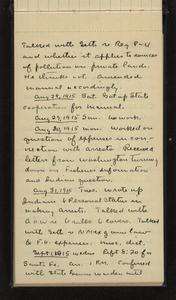 Talked with Sett re Reg P-41
and whether it applies to sources
of pollution on private lands.
He thinks not. Amended
manual accordingly.
Aug 28, 1915 Sat. Got up State
cooperation for Manual.
Aug 29, 1915 Sun. No work.
Aug 30, 1915 Mon. Worked on
question of expenses in con-
nection with arrests. Received
letter from Washington turning
down on Fisheries information
and Indian question.
Aug 31, 1915 Tues. Wrote up
Indians & Personal Status in
making arrests. Talked with
covers. Talked
with Sett re N Mex game law
& F.G. expenses. misc. dist.
Sept 1, 1915 Wednes. Left 8:20 for
Santa Fe, arr. 1 P.M. Conferred
with State Game warden and